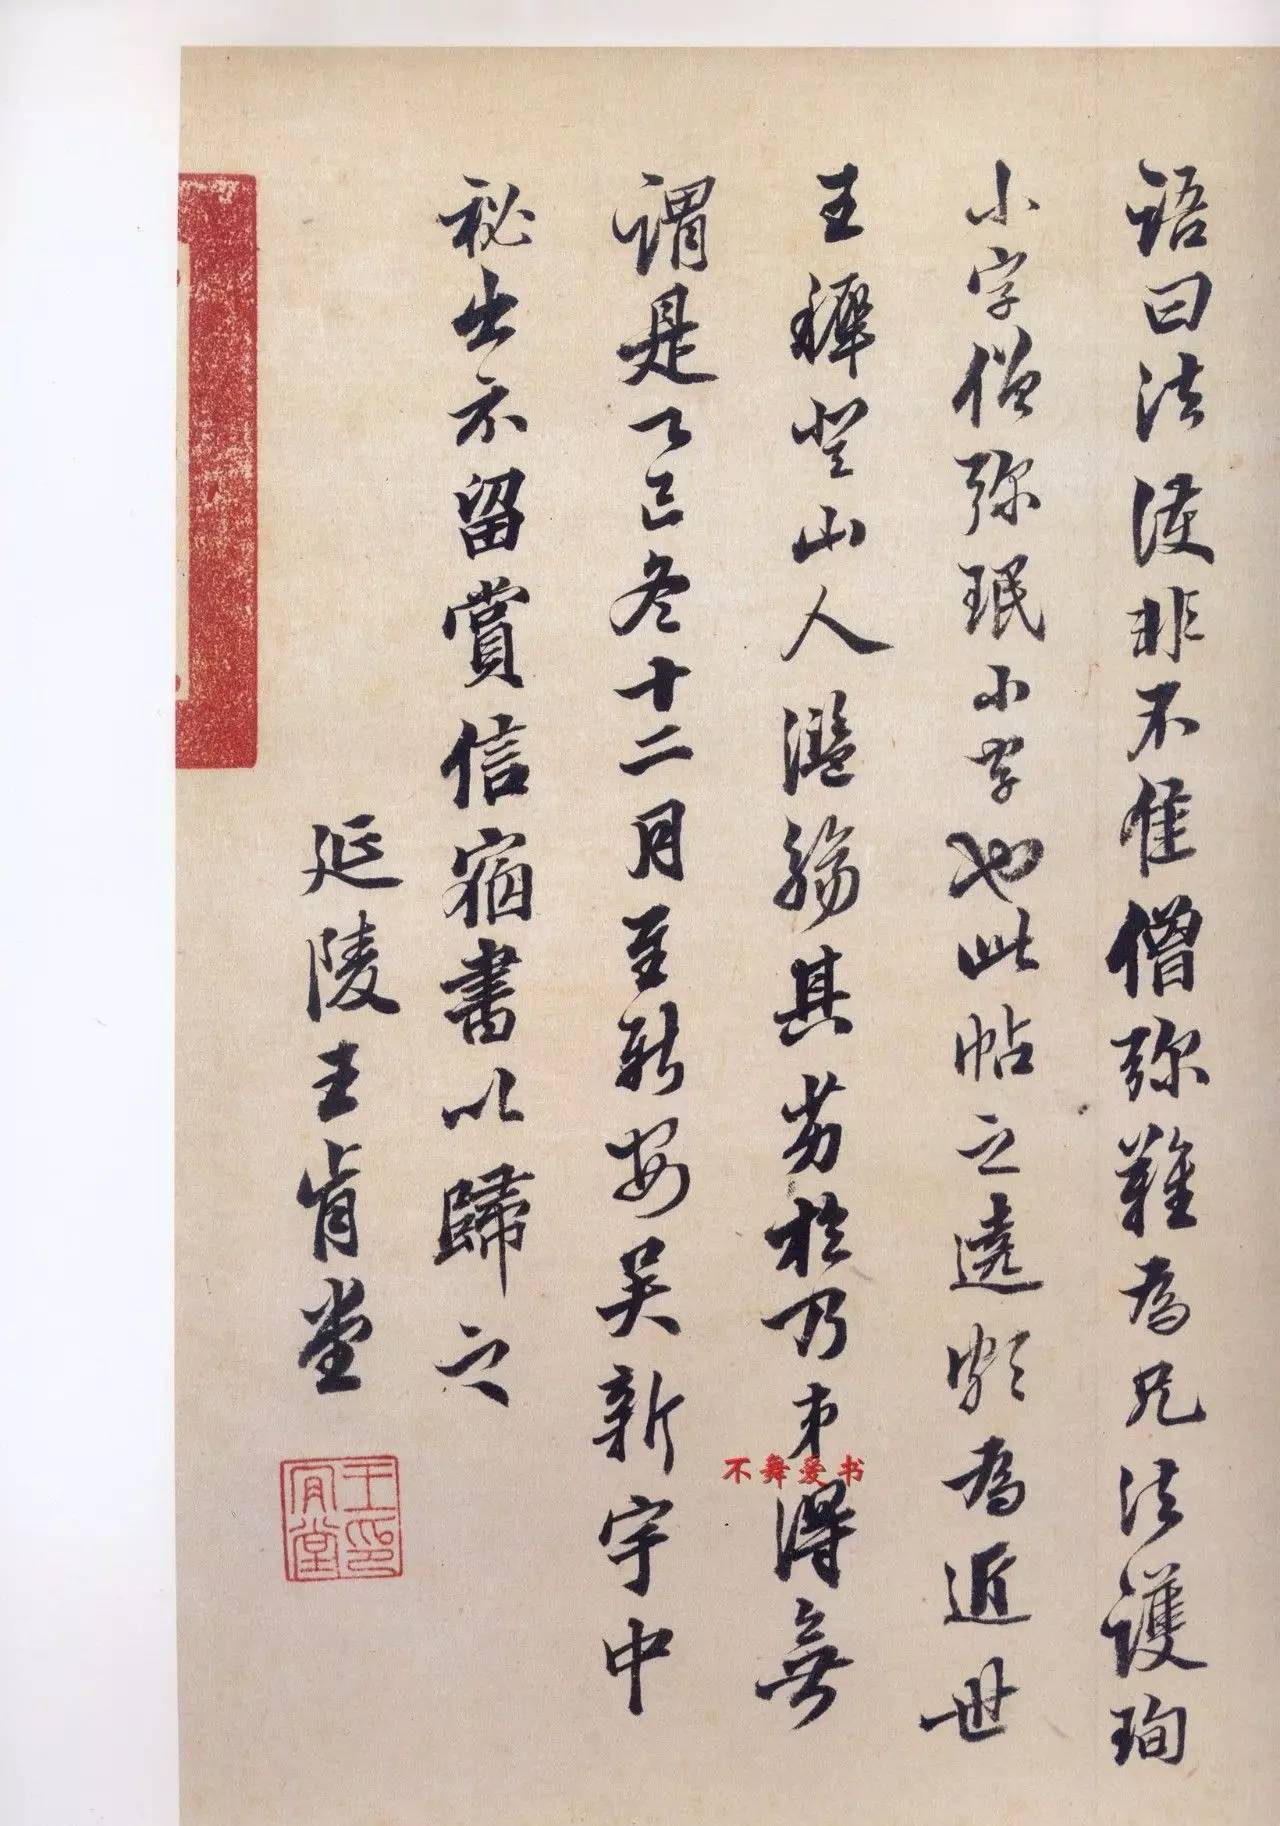 語曰法護非不佳僧彌難為兄法護珣
小字僧彌珉小字也此帖之遶頗為近世
王穉登山人濫觴其劣於乃弟得無
謂是乙巳冬十二月至新安吴新宇中
秘出示留賞信宿書以歸之
延陵王肯堂
王肯堂印
不舞爱书